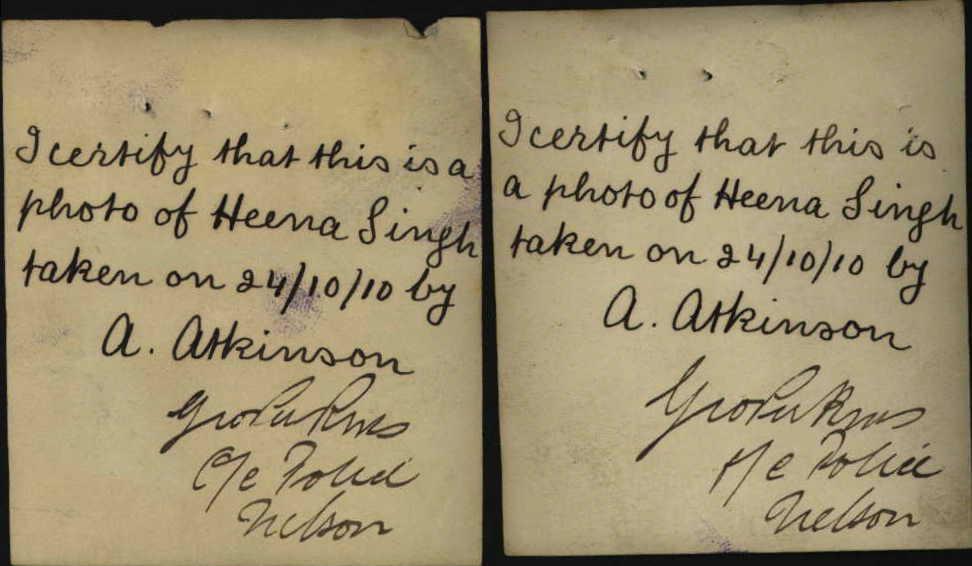 I certify that this is a
photo of Heena Singh
taken on 24/10/10 by
A. Atkinson
C/e Police
Nelson
I certify that this is
a photo of Heena Singh
taken on 24/10/10 by
A. Atkinson
Police
Nelson